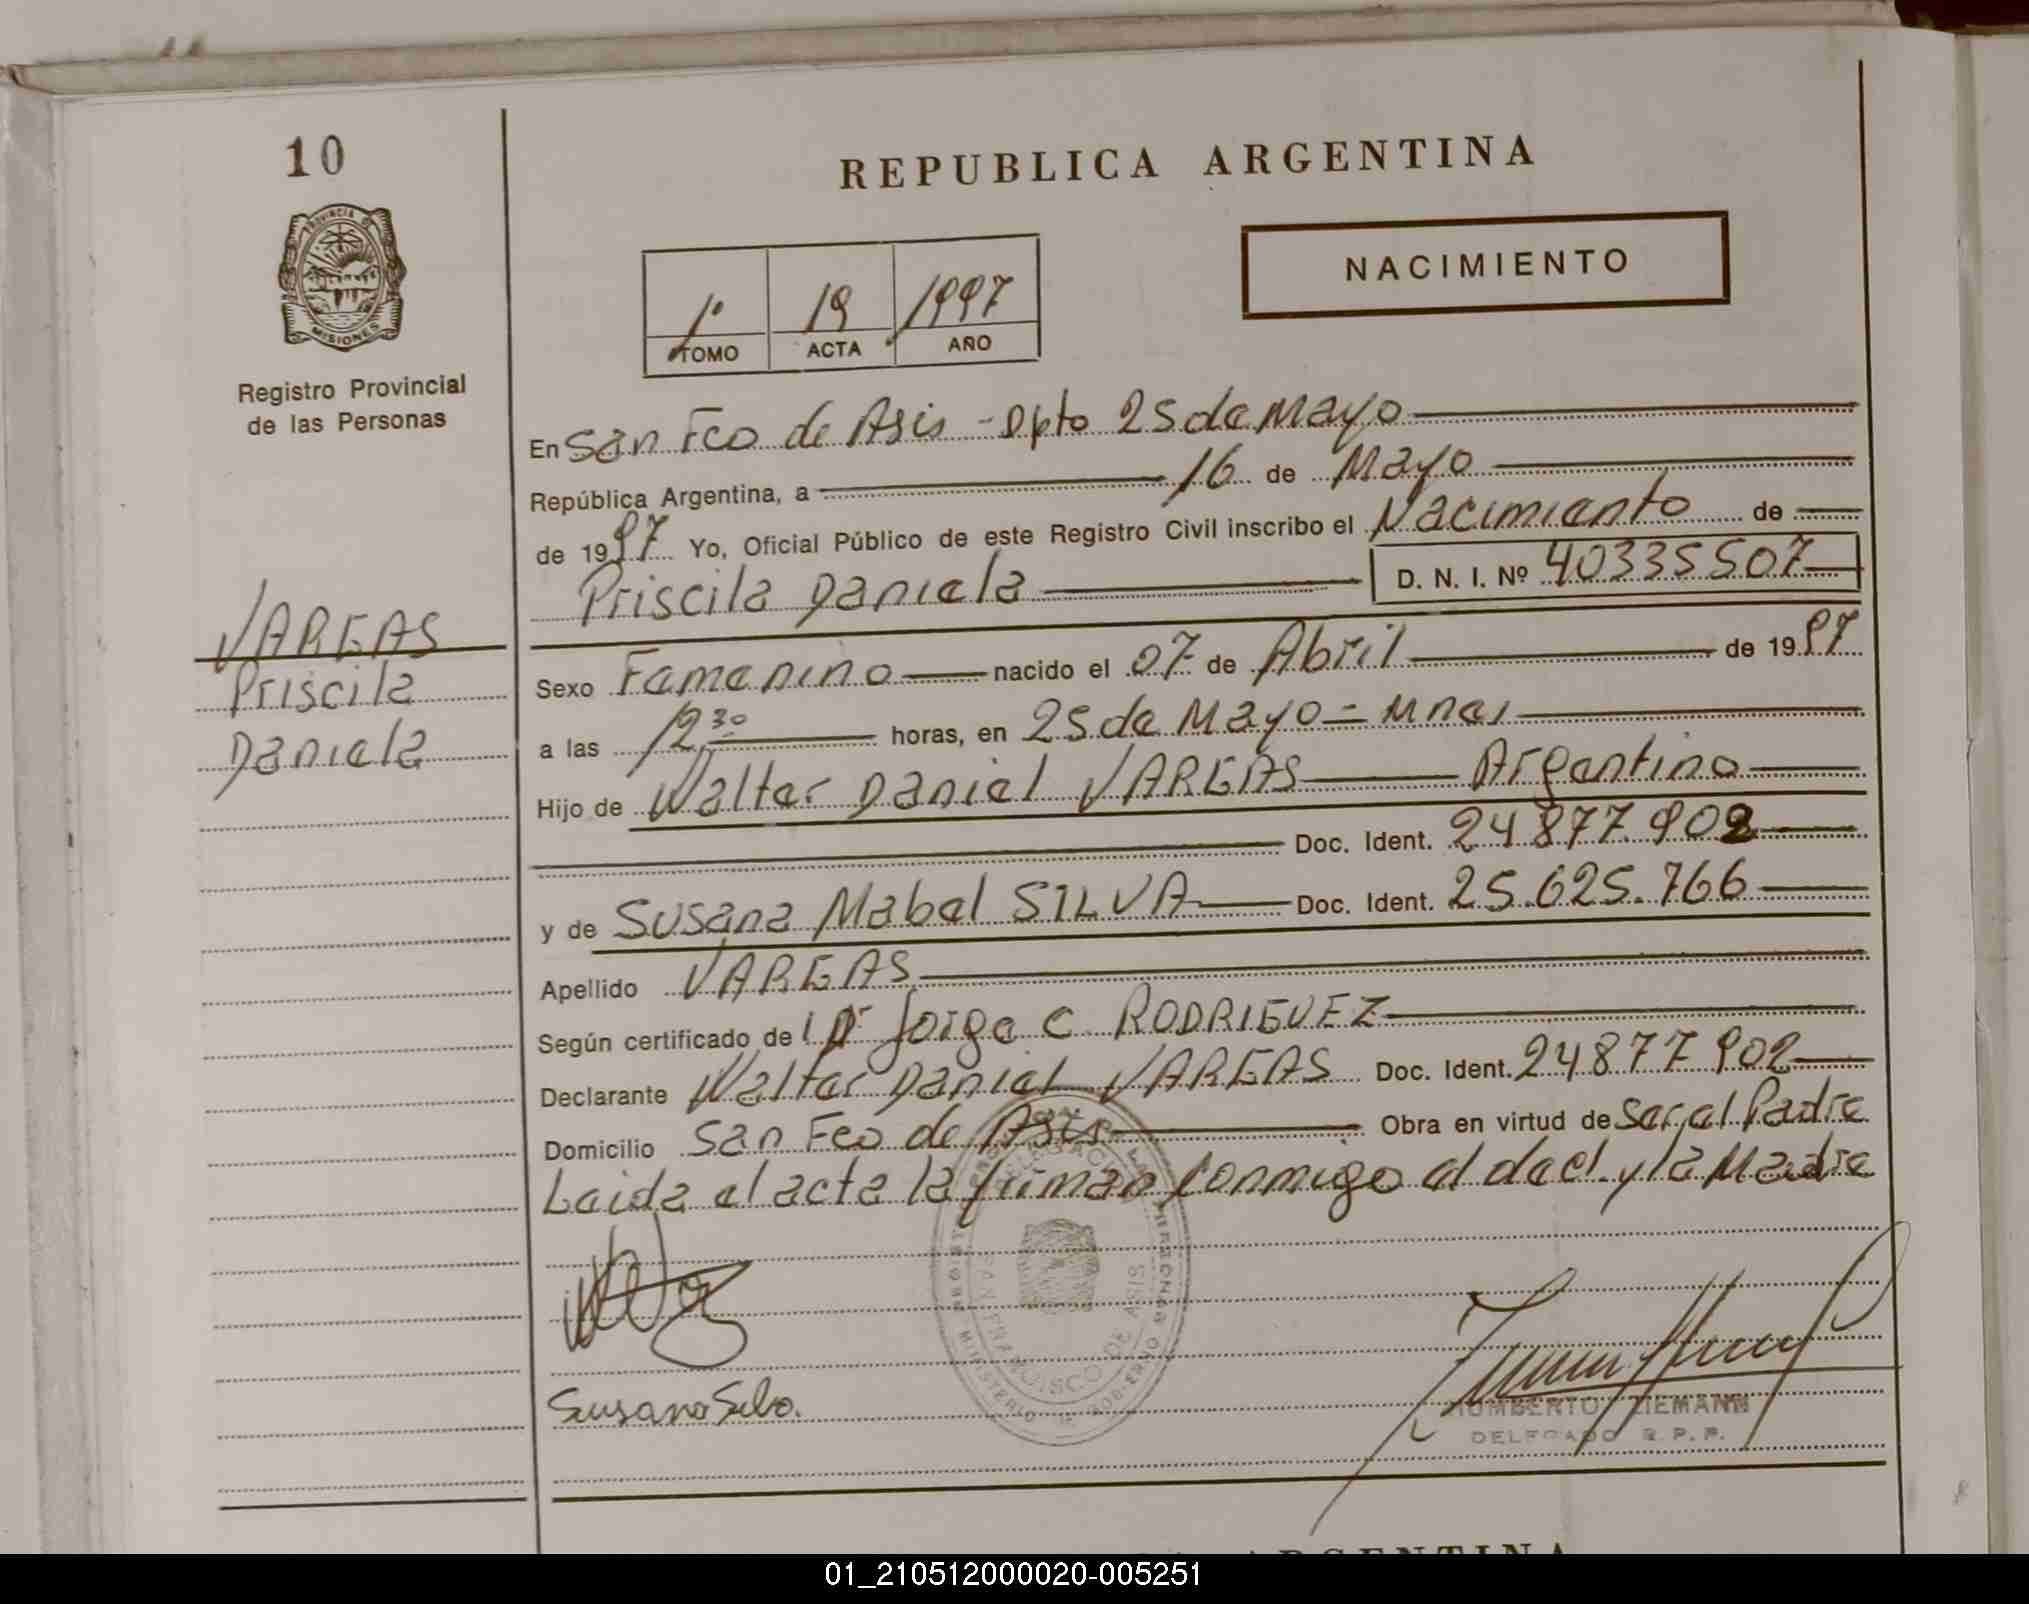 10
REPUBLICA ARGENTINA
PROVINCIA DE
MISIONES
NACIMIENTO
1º 19 1997
TOMO ACTA AÑO
Registro Provincial
de las Personas
En San Fco de Asis - Dpto 25 de Mayo
República Argentina, a 16 de Mayo
de 1997 Yo, Oficial Público de este Registro Civil inscribo el Nacimiento de
Priscila Daniela D. N. I. Nº 40335507
VARGAS
Priscila
Daniela
Sexo Femenino nacido el 07 de Abril de 1997
a las 12,30 horas, en 25 de Mayo - Mnes
Hijo de Walter Daniel VARGAS Argentino
Doc. Ident. 24.877.902
y de Susana Mabel SILVA Doc. Ident. 25.625.766
Apellido VARGAS
Según certificado de Dr Jorge C RODRIGUEZ
Declarante Walter Daniel VARGAS Doc. Ident. 24877902
Domicilio San Fco de Asis Obra en virtud de Ser el Padre
Leida el acta la firman conmigo el decl. y la Madre
SAN FRANCISCO DE ASIS
Susana Silva.
HUMBERTO ZIEMANN
DELEGADO R. P. P.
ARGENTINA
01_210512000020-005251